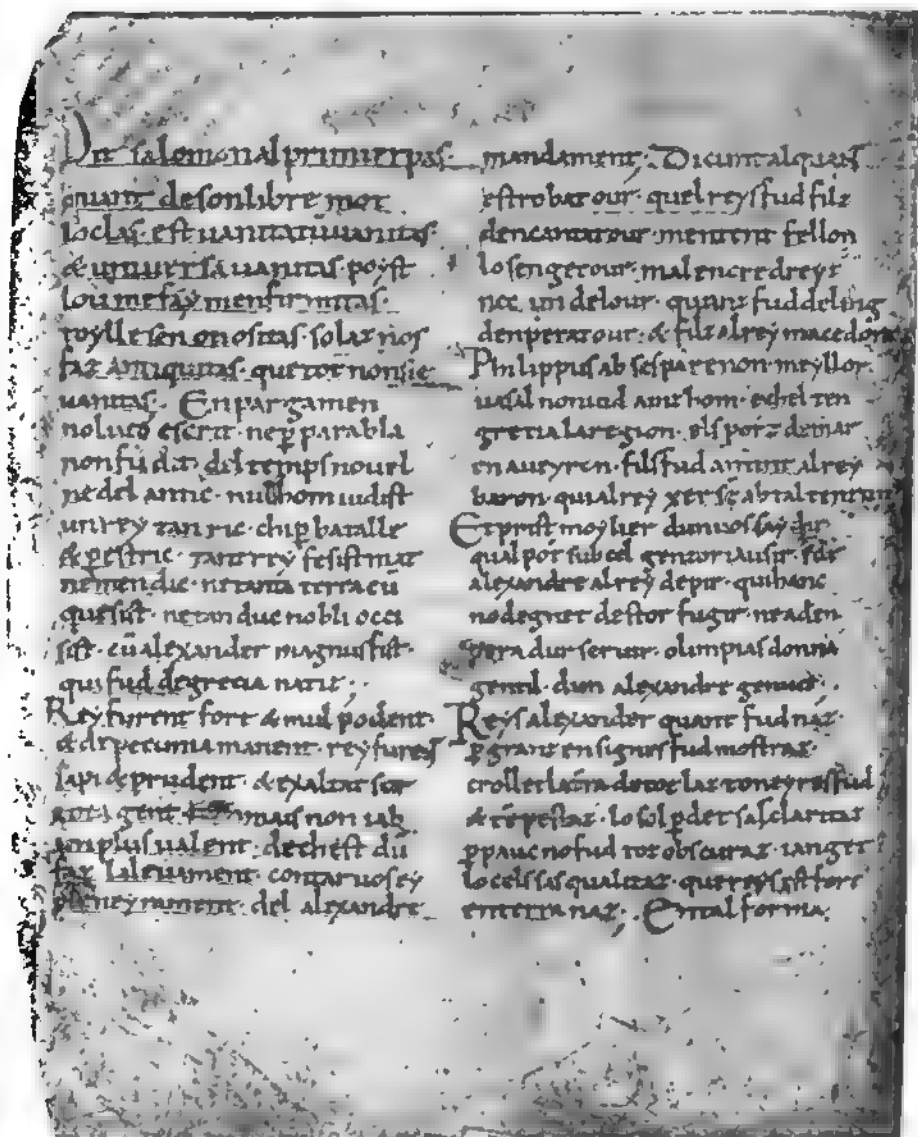 Dit salomon al primier pas
quant de son libre mot
lo clas. est uanitatum uanitas.
& uniuersa uanitas. poyst
lou me fay m enfirmitas.
toylle s en otiositas. solaz nos
faz antiquitas. que tot non sie
uanitas. En pargamen
nol uid escrit. ne p parabla
non fu dit. del temps nouel
ne del antic. nuls hom uidist
un rey tan ric. chi p batalle
& p estric. tant rey fesist mat
ne mendic. ne tanta terra cū
quesist. ne tan duc nobli occi
sist. cū alexander magnus fist.
qui fud de grecia natiz.
Rey furent fort & mul podent.
& de pecunia manent. rey furent
sapi & prudent. & exaltat sor
tota gent. mais non i ab
un plus ualent. de chest dū
faz l aleuament. contar uos ey
pleneyrament. del alexandre
mandament. Dicunt alquant
estrobatour. quel reys fud filz
d encantatour. mentent fellon
losengetour. mal en credreyz
nec un de lour. qu anz fud de ling
d enperatour. & filz al rey macedonor.
Philippus ab ses pare non. meyllor
uasal non uid ainz hom. e chel ten
gretia la region. els porz de mar
en aueyron. fils fud amint al rey
baron. qui al rey xersē ab tal tenzon.
Et prist moylier dun uos say dir
qual pot sub cel genzor iausir. sor
alexandre al rey depir. qui hanc
no degnet destor fugir. ne ad en
peradur seruir. olimpias donna
gentil. dun alexandre genuit.
Reys alexander quant fud naz.
p granz ensignes fud mostraz.
crollet la tīra de toz laz. toneyres fud
& tēpestaz. lo sol pdet sas claritaz
p pauc no fud toz obscuraz. ianget
lo cels sas qualitaz. que reys est forz
en terra naz. En tal forma